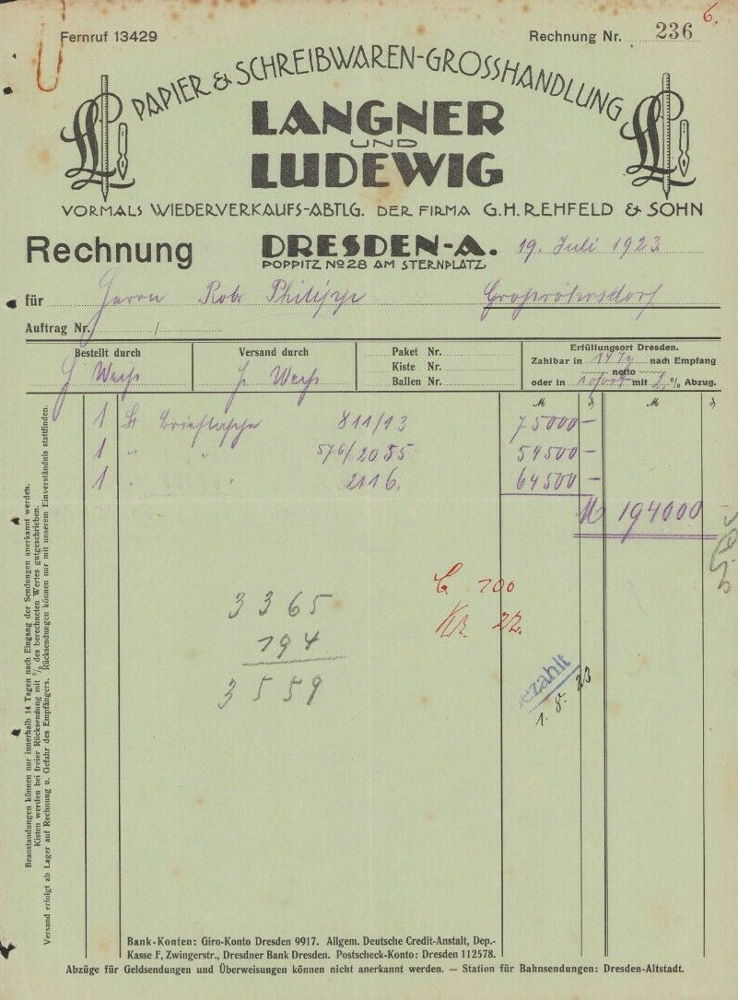 6.
Fernruf 13429
Rechnung Nr. 236
PAPIER & SCHREIBWAREN-GROSSHANDLUNG
LANGNER
UND
LUDEWIG
VORMALS WIEDERVERKAUFS-ABTLG. DER FIRMA G.H. REHFELD & SOHN
Rechnung
DRESDEN-A. 19. Juli 1923
POPPITZ No 28 AM STERNPLATZ
für Herrn Rob. Philipp Großröhrsdorf
Auftrag Nr. /
Bestellt durch
Versand durch
Paket Nr.
Kiste Nr.
Ballen Nr.
Erfüllungsort Dresden.
Zahlbar in 14 Tg nach Empfang
netto
oder in sofort mit 2% Abzug.
M ₰ M ₰
1 St Brieftasche 811/13 75000 –
1 " " 576/2055 54500 –
1 " " 2116. 64500 –
M 194000
3365
194
3559
100
22.
Bezahlt
1. 8. 23
Beanstandungen können nur innerhalb 14 Tagen nach Eingang der Sendungen anerkannt werden.
Kisten werden bei freier Rücksendung mit ²/₃ des berechneten Wertes gutgeschrieben.
Versand erfolgt ab Lager auf Rechnung u. Gefahr des Empfängers. Rücksendungen können nur mit unserem Einverständnis stattfinden.
Bank-Konten: Giro-Konto Dresden 9917. Allgem. Deutsche Credit-Anstalt, Dep.-
Kasse F, Zwingerstr., Dresdner Bank Dresden. Postscheck-Konto: Dresden 112578.
Abzüge für Geldsendungen und Überweisungen können nicht anerkannt werden. — Station für Bahnsendungen: Dresden-Altstadt.